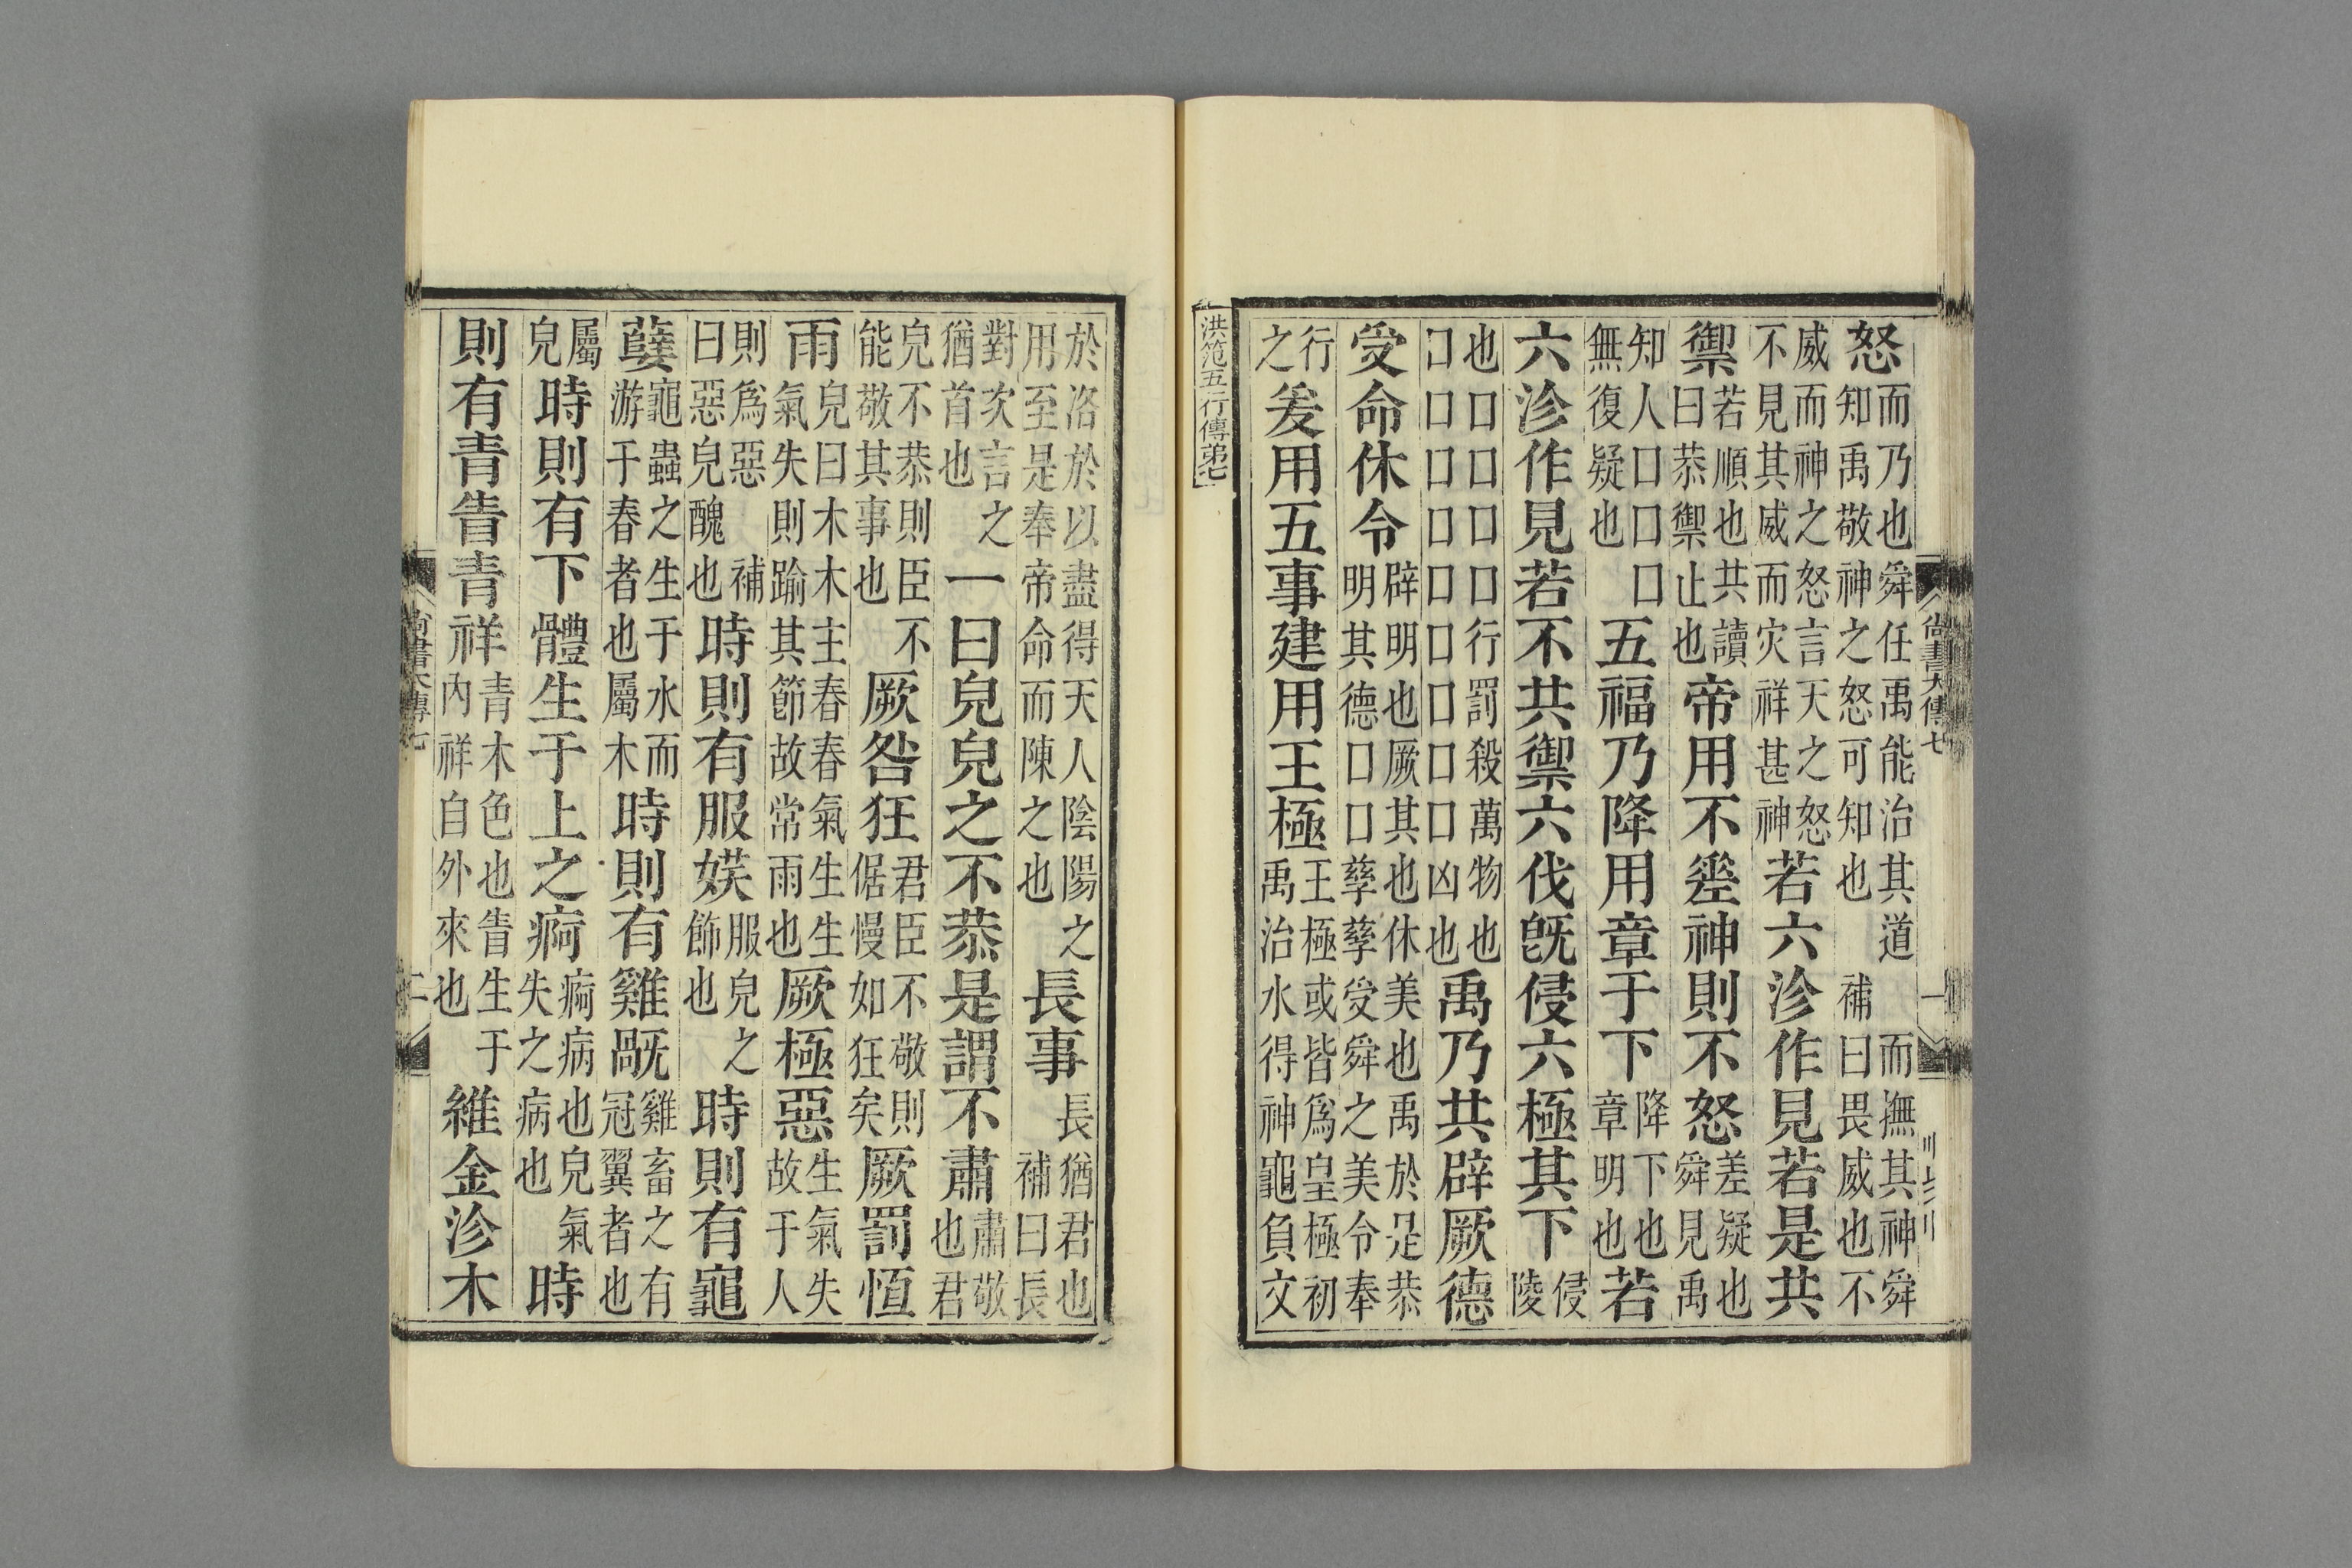 怒
而乃也舜任禹能治其道
知禹敬神之怒可知也
而撫其神舜
補曰畏威也不
威而神之怒言天之怒
不見其威而灾祥甚神
若六沴作見若是共
禦
若順也共讀
曰恭禦止也
帝用不差神則不怒
差疑也
舜見禹
知人□□□
無復疑也
五福乃降用章于下
降下也
章明也
若
六沴作見若不共禦六伐旣侵六極其下
侵
陵
也□□□□行罰殺萬物也
□□□□□□□□□凶也
禹乃共辟厥德
受命休令
辟明也厥其也休美也禹於是恭
明其德□□孳孳受舜之美令奉
行
之
爰用五事建用王極
王極或皆爲皇極初
禹治水得神龜負文
洪范五行傳弟七
尚書大傳七
一
於洛於以盡得天人陰陽之
用至是奉帝命而陳之也
長事
長猶君也
補曰長
對次言之
猶首也
一曰皃皃之不恭是謂不肅
肅敬
也君
皃不恭則臣不
能敬其事也
厥咎狂
君臣不敬則
倨慢如狂矣
厥罰恆
雨
皃曰木木主春春氣生生
氣失則踰其節故常雨也
厥極惡
生氣失
故于人
則爲惡
補
曰惡皃醜也
時則有服媄
服皃之
飾也
時則有龜
孽
龜蟲之生于水而
游于春者也屬木
時則有雞旤
雞畜之有
冠翼者也
屬
皃
時則有下體生于上之痾
痾病也皃氣
失之病也
時
則有青眚青祥
青木色也眚生于
內祥自外來也
維金沴木
尚書大傳七
二